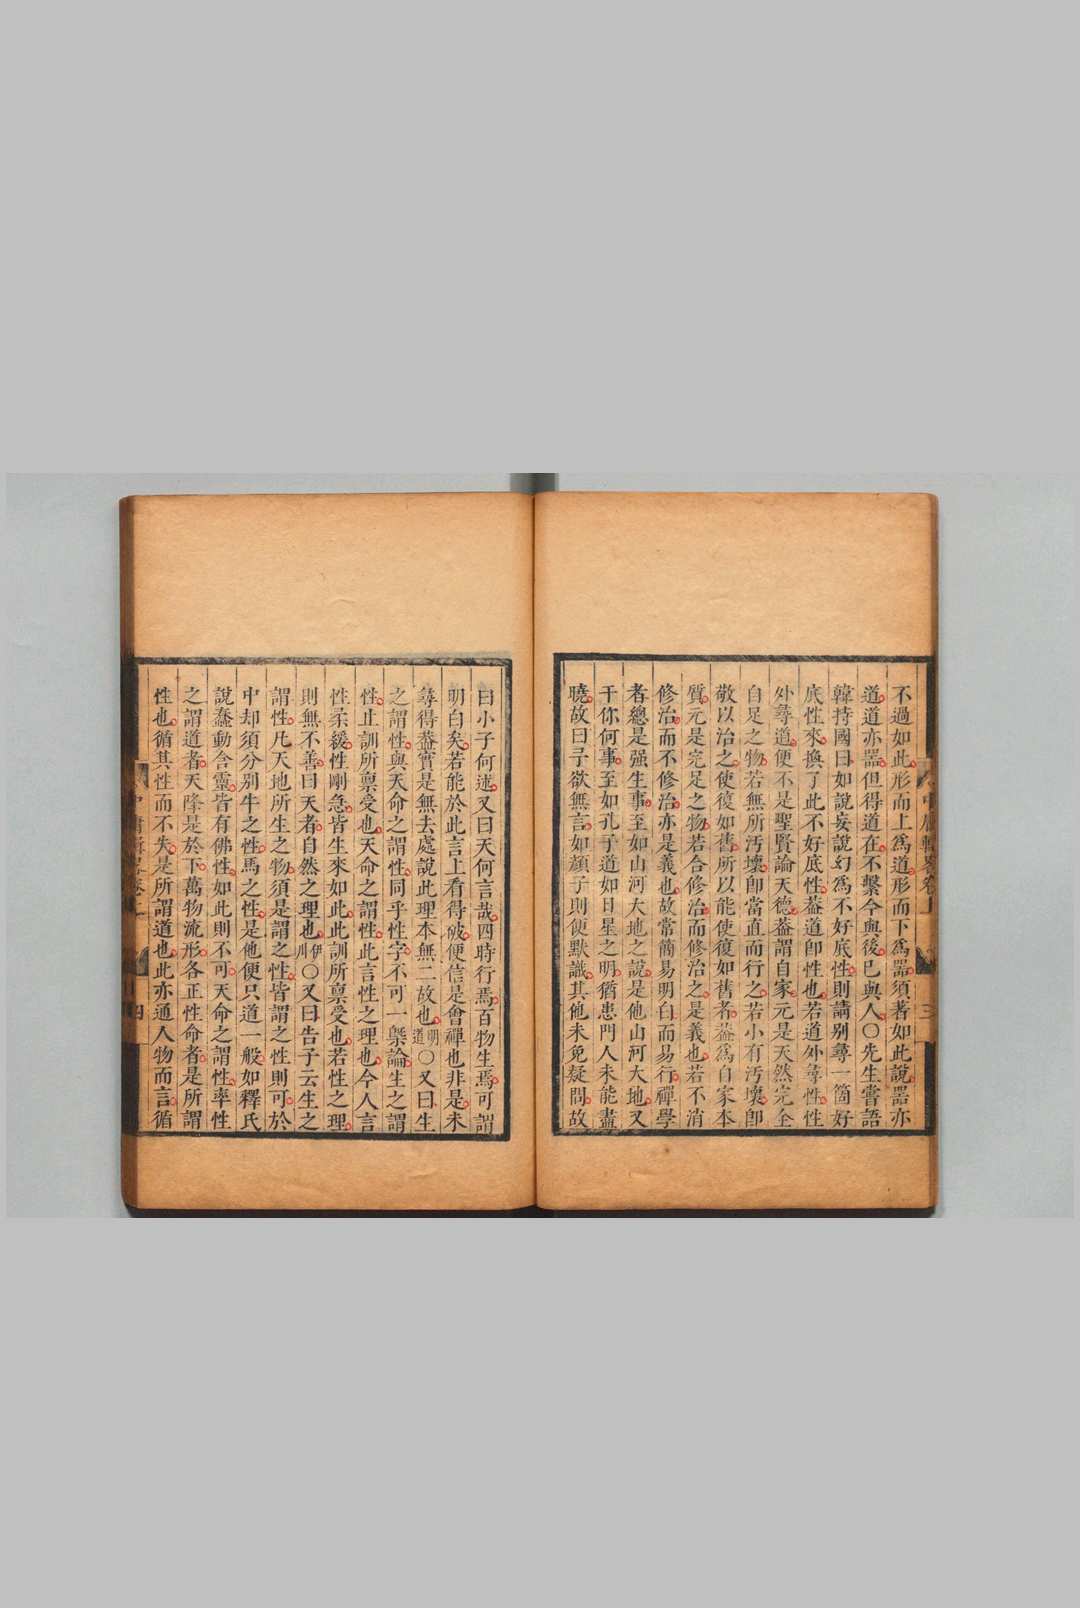 不過如此形而上爲道形而下爲器須著如此說器亦
道道亦器但得道在不繫今與後已與人〇先生嘗語
韓持國曰如說妄說幻爲不好底性則請別尋一箇好
底性來換了此不好底性葢道卽性也若道外尋性性
外尋道便不是聖賢論天德葢謂自家元是天然完全
自足之物若無所汚壞卽當直而行之若小有汚壞卽
敬以治之使復如舊所以能使復如舊者葢爲自家本
質元是完足之物若合修治而修治之是義也若不消
修治而不修治亦是義也故常簡易明白而易行禪學
者總是强生事至如山河大地之說是他山河大地又
干你何事至如孔子道如日星之明猶患門人未能盡
曉故曰予欲無言如顏子則便默識其他未免疑問故
中庸輯畧卷上
三
曰小子何述又曰天何言哉四時行焉百物生焉可謂
明白矣若能於此言上看得破便信是會禪也非是未
尋得葢實是無去處說此理本無二故也明道〇又曰生
之謂性與天命之謂性同乎性字不可一槩論生之謂
性止訓所禀受也天命之謂性此言性之理也今人言
性柔緩性剛急皆生來如此此訓所禀受也若性之理
則無不善曰天者自然之理也伊川〇又曰告子云生之
謂性凡天地所生之物須是謂之性皆謂之性則可於
中却須分別牛之性馬之性是他便只道一般如釋氏
說蠢動含靈皆有佛性如此則不可天命之謂性率性
之謂道者天降是於下萬物流形各正性命者是所謂
性也循其性而不失是所謂道也此亦通人物而言循
四